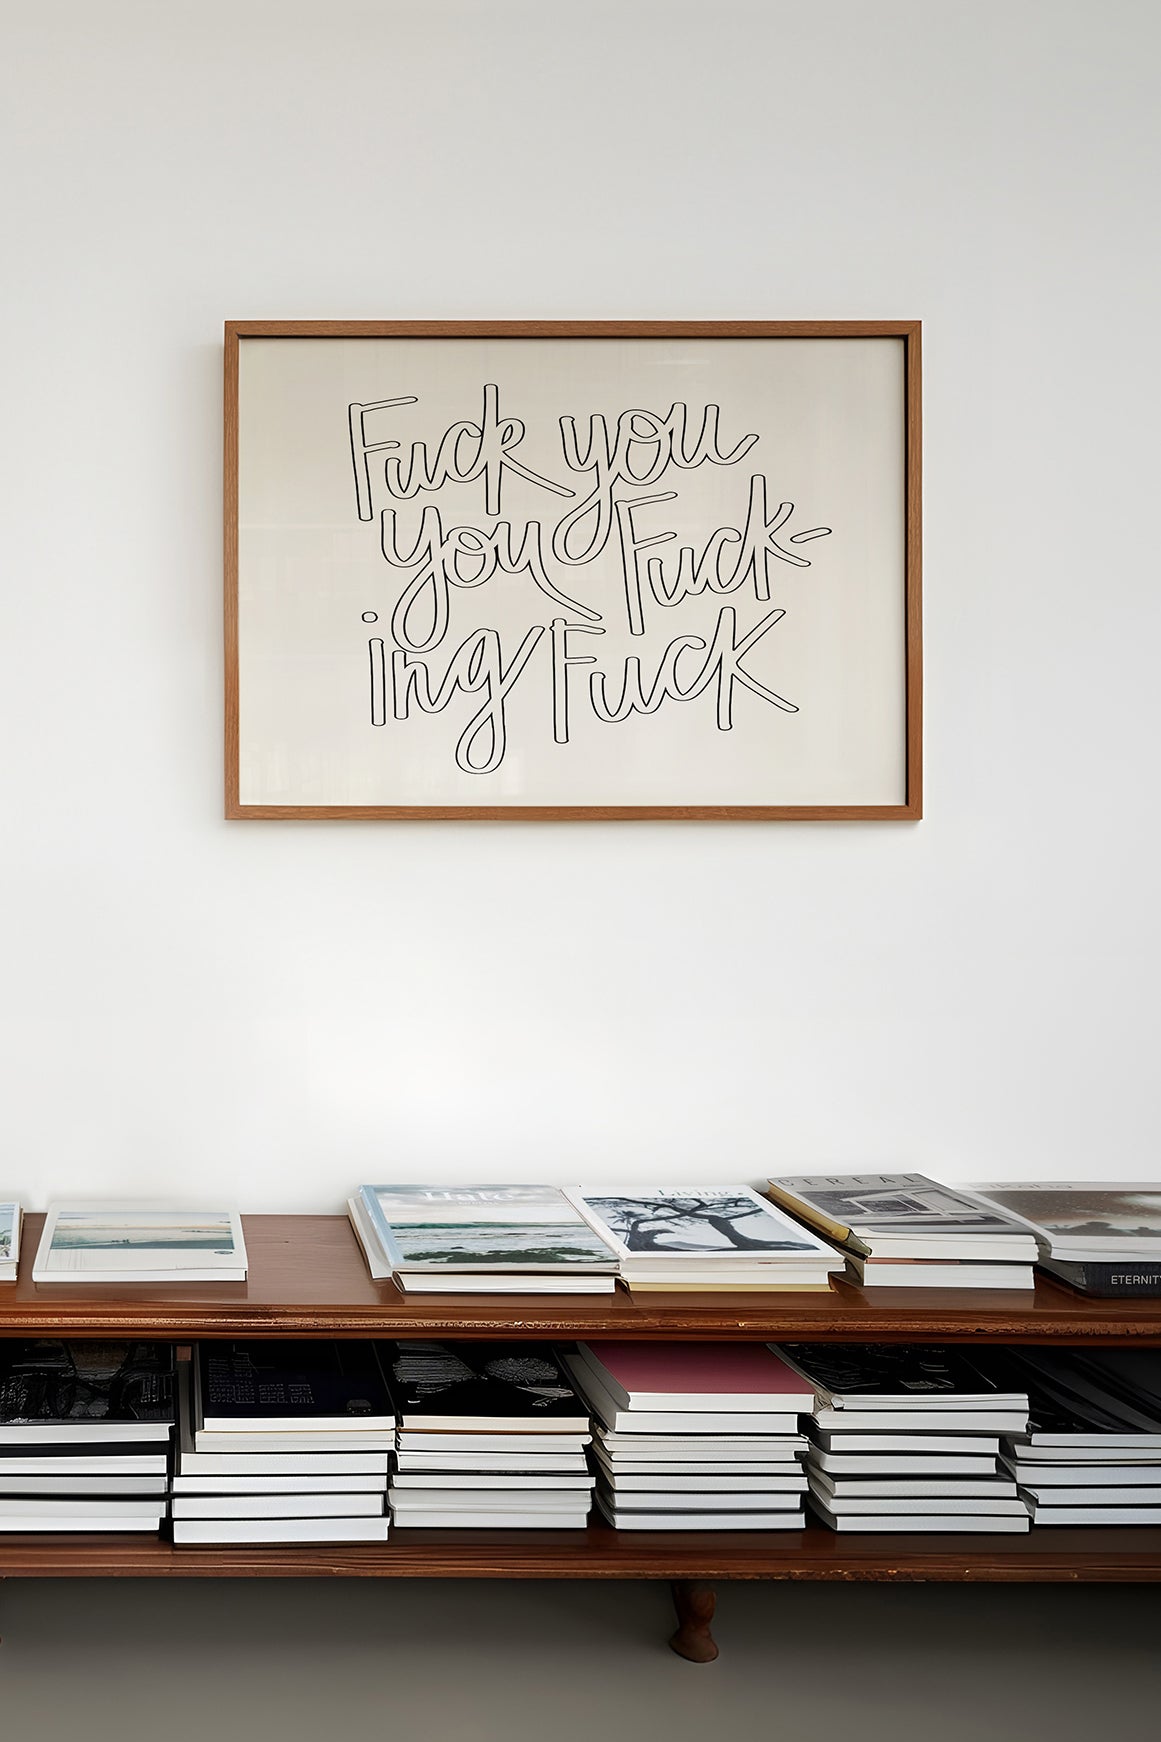 Fuck you
you Fuck-
ing Fuck
Living
CEREAL
ETERNITY